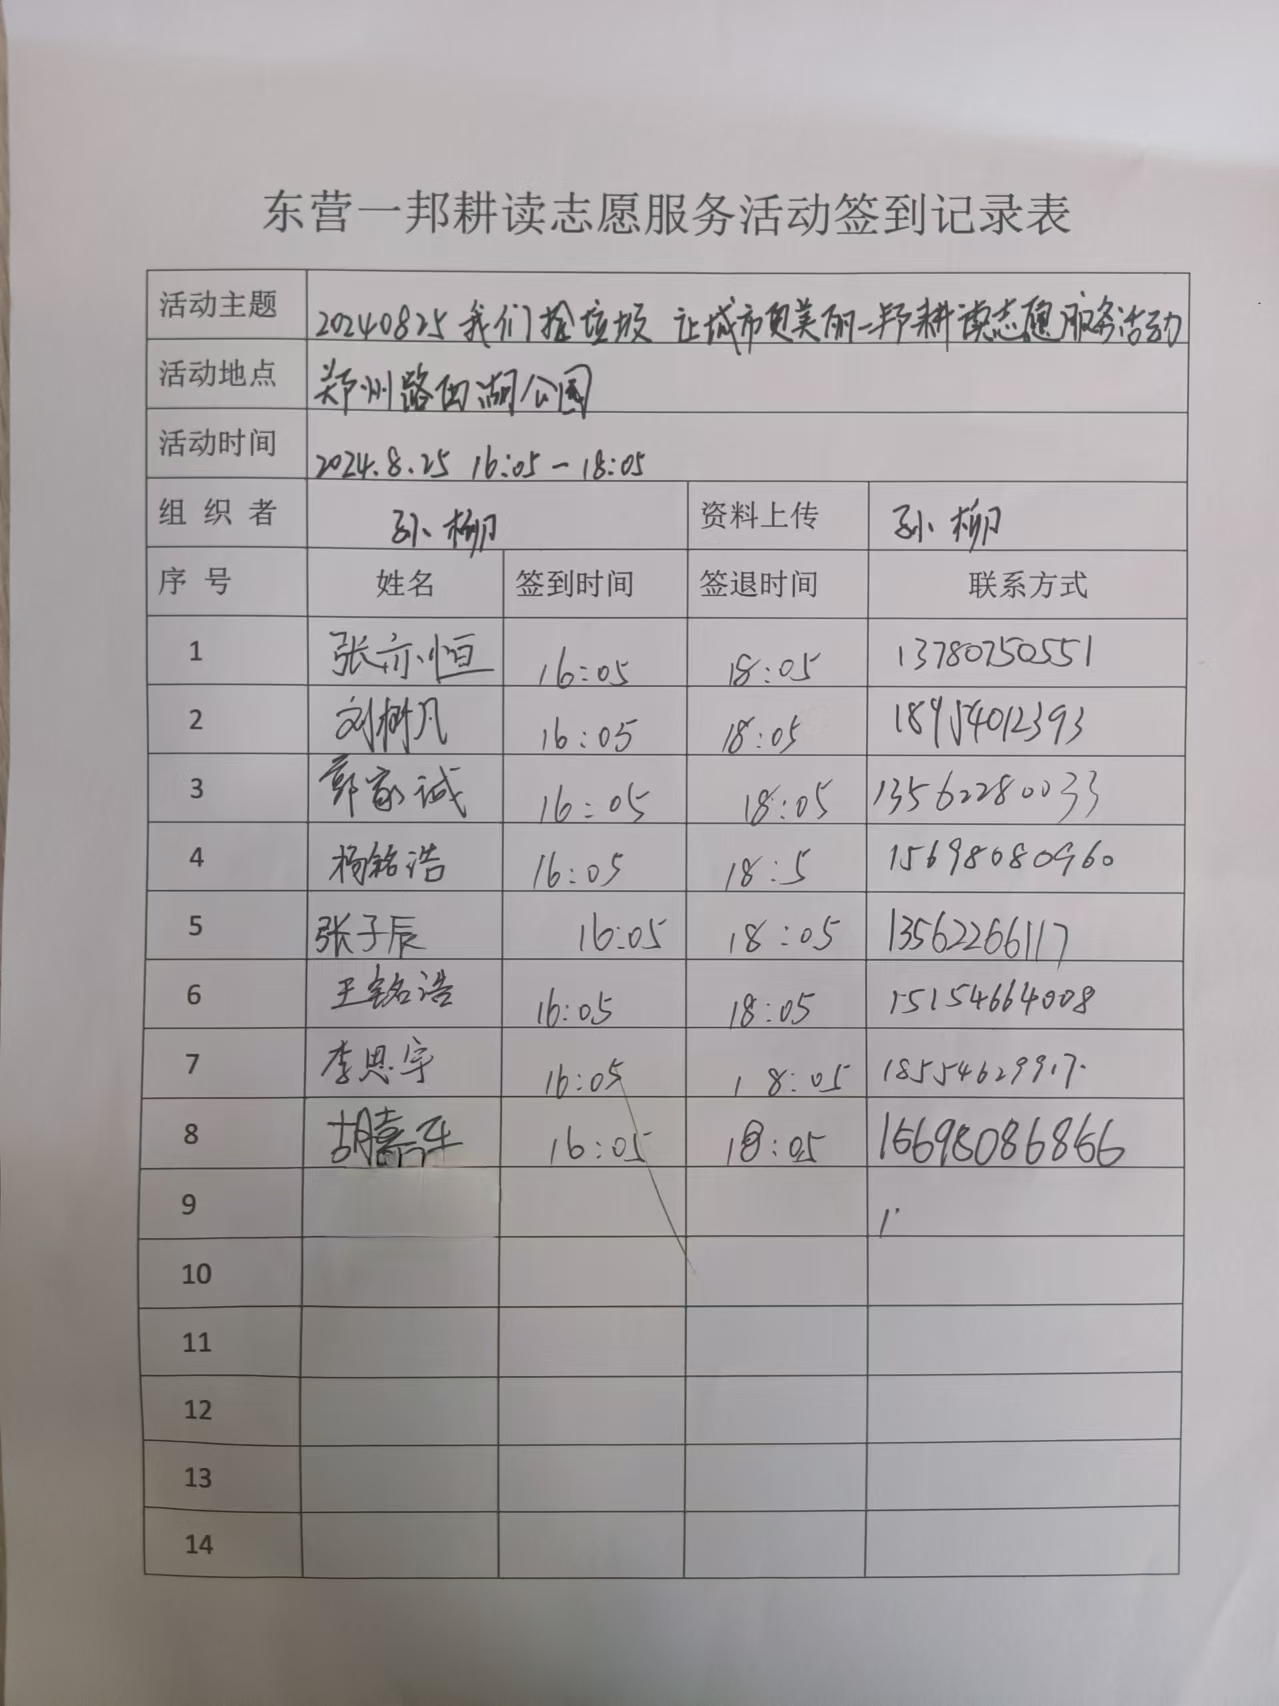 东营一邦耕读志愿服务活动签到记录表
活动主题 20240825 我们捡垃圾 让城市更美丽一邦耕读志愿服务活动
活动地点 郑州路西湖公园
活动时间 2024.8.25 16:05-18:05
组织者 孙柳 资料上传 孙柳
序号 姓名 签到时间 签退时间 联系方式
1 张亦恒 16:05 18:05 13780750551
2 刘树凡 16:05 18:05 18954012393
3 郭家诚 16:05 18:05 13562280033
4 杨铭浩 16:05 18:5 15698080960
5 张子辰 16:05 18:05 13562266117
6 王铭浩 16:05 18:05 15154664008
7 李思宇 16:05 18:05
8 胡嘉 16:05 18:05 16698086866
9
10
11
12
13
14